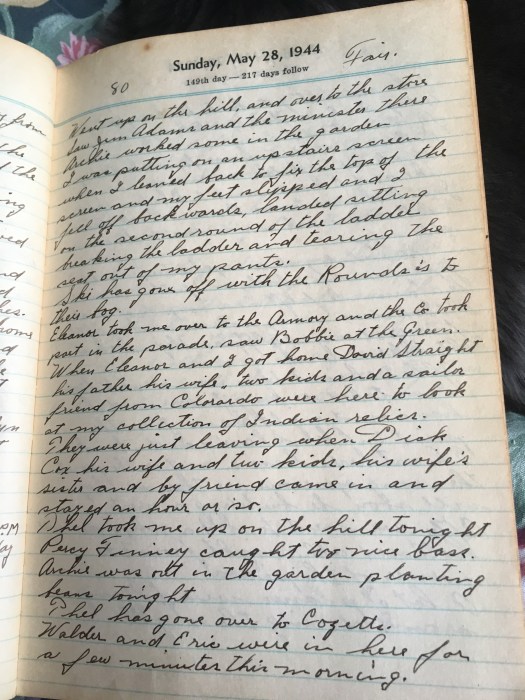 Sunday, May 28, 1944
149th day — 217 days follow
80
Fair.
Went up on the hill, and over to the store
Saw Jim Adams and the minister there
Archie worked some in the garden
I was putting on an upstairs screen
when I leaned back to fix the top of the
screen and my feet slipped and I
fell off backwards, landed sitting
on the second round of the ladder
breaking the ladder and tearing the
seat out of my pants.
Ski has gone off with the Rounds's to
their bog.
Eleanor took me over to the Armory and the Co. took
part in the parade, saw Bobbie at the Green.
When Eleanor and I got home David Straight
his father his wife, two kids and a sailor
friend from Colorardo were here to look
at my collection of Indian relics.
They were just leaving when Dick
Cox his wife and two kids, his wife's
sister and by friend came in and
stayed an hour or so.
Phel took me up on the hill tonight
Percy Finney caught two nice bass.
Archie was out in the garden planting
beans tonight
Phel has gone over to Cozette.
Walder and Eric were in here for
a few minutes this morning.
the
ing
P.M